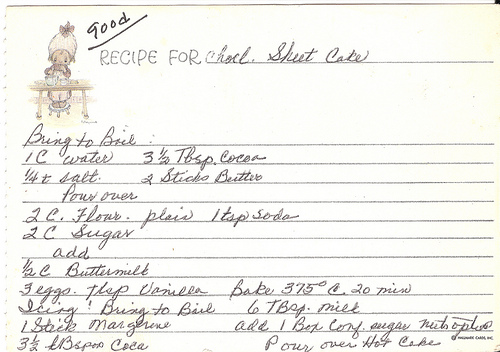 Good
RECIPE FOR Chocl. Sheet Cake
Bring to Boil :
1 C water 3 1/2 Tbsp Cocoa
1/4 t salt. 2 Sticks Butter
Pour over
2 C. Flour. plain 1 tsp soda
2 C Sugar
add
1/2 C Buttermilk
3 eggs. 1 tsp Vanilla Bake 375° C. 20 min
Icing : Bring to Boil 6 TBsp. milk
1 Stick Margerine add 1 Box Conf. sugar nuts optio
3 1/2 tBspon Coca Pour over Hot Cake
HALLMARK CARDS, INC.